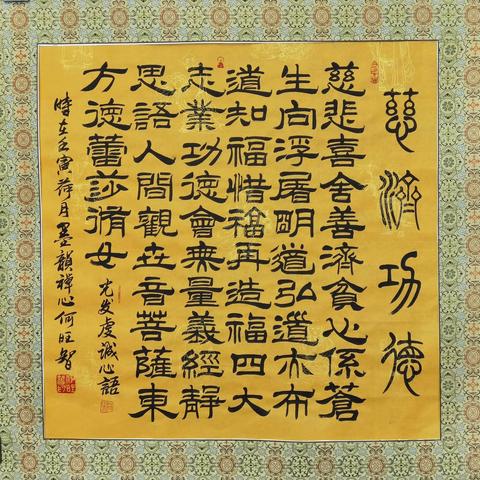 慈濟功德
慈悲喜舍善濟貧心係蒼
生向浮屠明道弘道亦布
道知福惜福再造福四大
志業功德會無量義經靜
思語人間觀世音菩薩東
方德蕾莎脩女
虔誠心語
時在壬寅荷月墨韻禪心何旺智